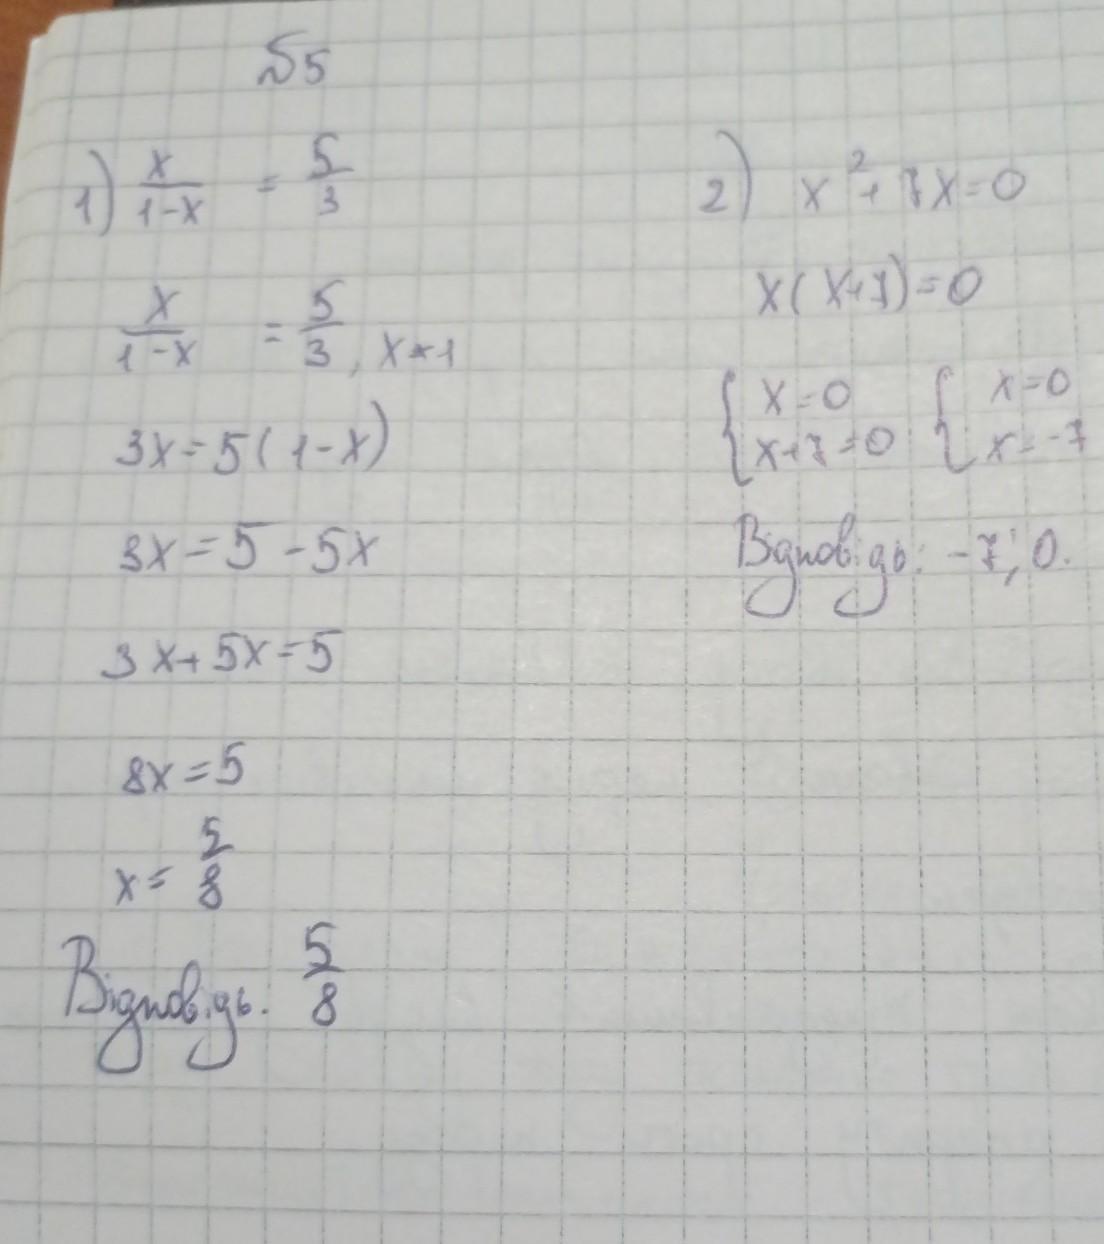 №5
1) x/(1-x) = 5/3
x/(1-x) = 5/3, x≠1
3x=5(1-x)
3x=5-5x
3x+5x=5
8x=5
x=5/8
Відповідь. 5/8
2) x²+7x=0
x(x+7)=0
{x=0 {x=0
x+7=0 x=-7
Відповідь: -7; 0.